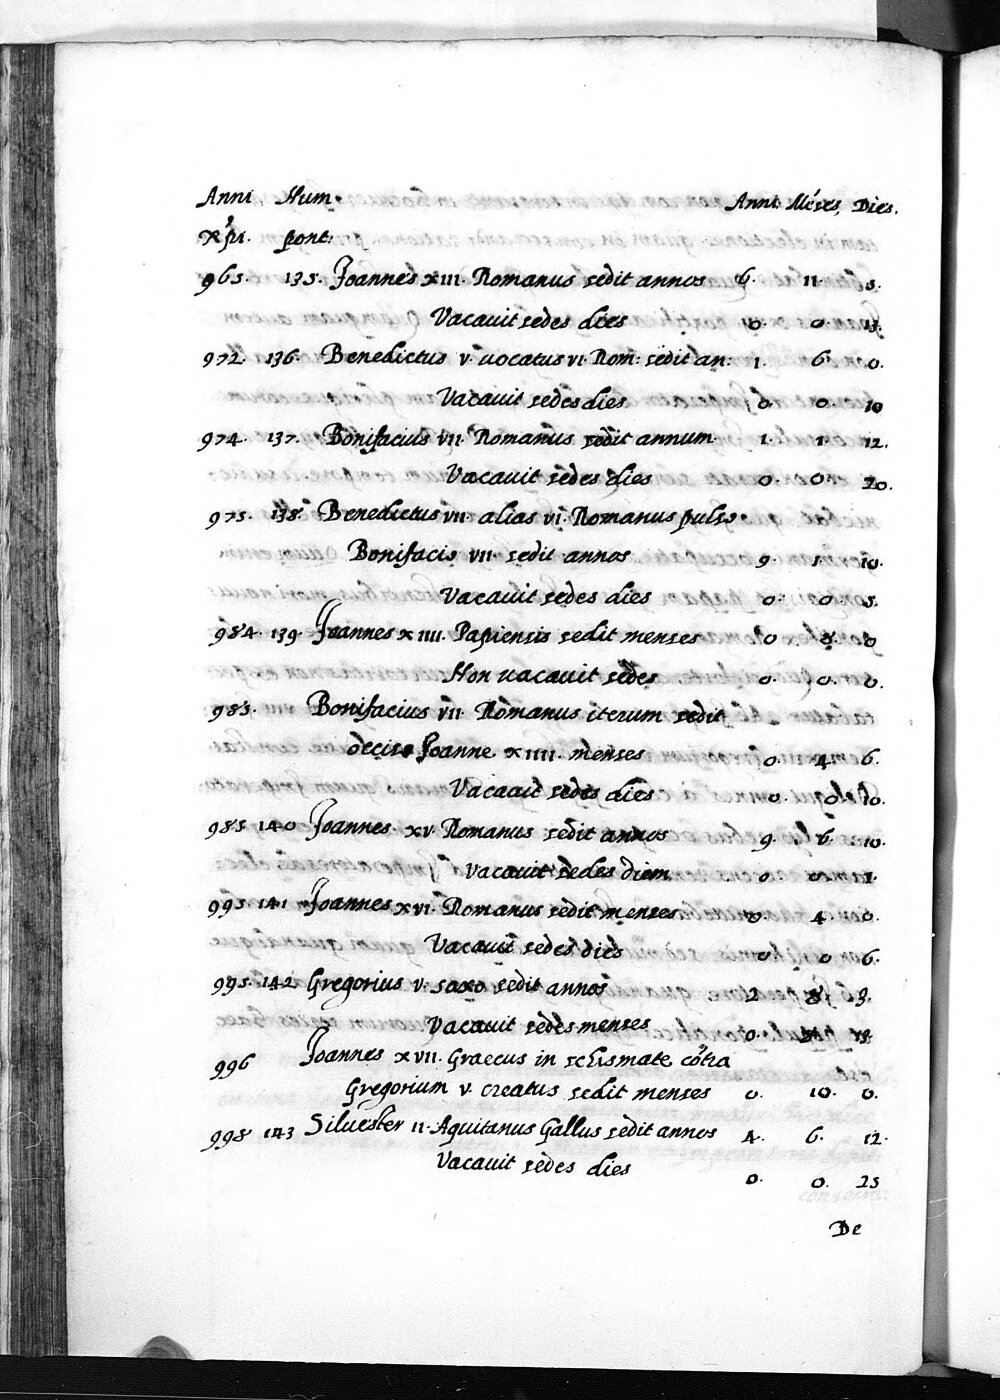 Anni Num. Anni. Mēses, Dies.
Xp̄i. pont:
965. 135. Joannes XIII. Romanus sedit annos 6. 11. 5.
Vacauit sedes dies 0. 0. 13.
972. 136. Benedictus V. uocatus VI. Rom: sedit an: 1. 6. 0.
Vacauit sedes dies 0. 0. 10
974. 137. Bonifacius VII. Romanus sedit annum 1. 1. 12.
Vacauit sedes dies 0. 0. 20.
975. 138. Benedictus VII. alias VI. Romanus pulso.
Bonifacio VII. sedit annos 9. 1. 10.
Vacauit sedes dies 0. 0. 5.
984. 139. Joannes XIIII. Papiensis sedit menses 0 8. 0
Non uacauit sedes 0. 0. 0.
985. Bonifacius VII. Romanus iterum sedit
occiso Joanne XIIII. menses 0. 4. 6.
Vacauit sedes dies 0. 0 10.
985 140 Joannes XV. Romanus sedit annos 9. 6. 10.
Vacauit sedes diem 0. 0 1.
995 141 Joannes XVI. Romanus sedit menses 0. 4. 0.
Vacauit sedes dies 0 0 6.
995. 142 Gregorius V. saxo sedit annos 2 8. 3.
Vacauit sedes menses 0.
996 Joannes XVII. Graecus in schismate cōtra
Gregorium V. creatus sedit menses 0. 10. 0.
998 143 Siluester II. Aquitanus Gallus sedit annos 4. 6. 12.
Vacauit sedes dies 0. 0. 23
De